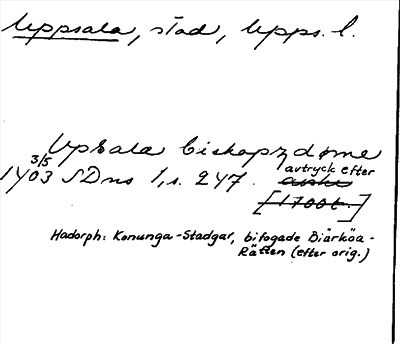 Uppsala, stad, Upps. l.
Upsala biskopzdøme
1403 3/5 SDns 1, s. 247. avtryck efter
[1700t.]
Hadorph: Konunga-Stadgar, bifogade Biärköa-
Rätten (efter orig.)